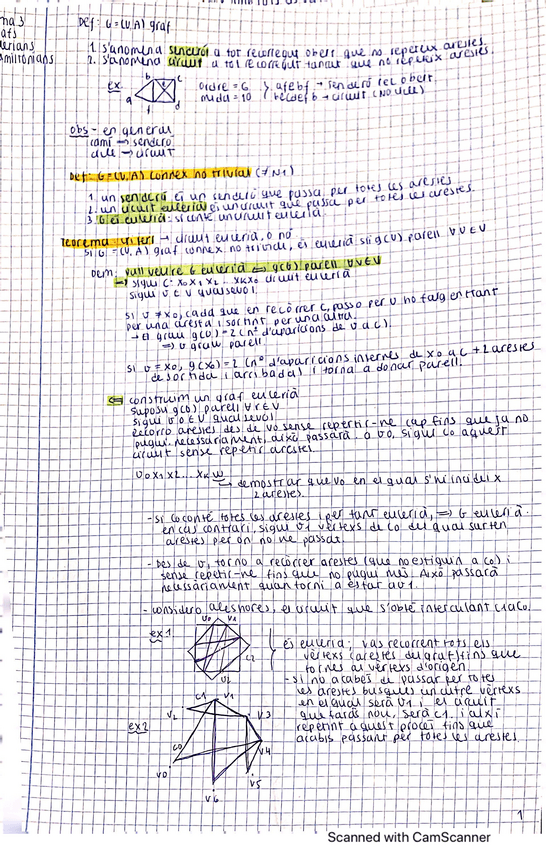 ma 3
afs
lerians
amiltonians
Def: G=(V,A) graf
1. s'anomena senderó a tot recorregut obert que no repeteix arestes.
2. s'anomena circuit a tot recorregut tancat que no repeteix arestes.
ex
a
b
c
d
e
f
ordre = 6
mida = 10
afebf → senderó rec obert.
becdefb → circuit (NO cicle)
obs - en general
camí → senderó
cicle → circuit
Def: G=(V,A) connex no trivial (≠N1)
1. un senderó és un senderó que passa per totes les arestes
2. un circuit eulerià és un circuit que passa per totes les arestes.
3. G és eulerià: si conté un circuit eulerià.
Teorema: criteri → circuit eulerià, o no
Sigui G=(V,A) graf connex no trivial, és eulerià sii g(v) parell ∀v∈V
Dem: vull veure G eulerià ⇔ g(v) parell ∀v∈V
→ sigui C: x0x1x2... xkx0 circuit eulerià
sigui v∈V qualsevol.
si v≠x0, cada que en recórrer C, passo per v ho faig entrant
per una aresta i sortint per una altra.
→ el grau g(v)=2(nº d'aparicions de v a C).
⇒ v grau parell.
si v=x0, g(x0)=2(nº d'aparicions internes de x0 a C + 2 arestes
de sortida i arribada) i torna a donar parell.
⇐ construïm un graf eulerià
suposo g(v) parell ∀v∈V
sigui v0∈V qualsevol
recorro arestes des de v0 sense repetir-ne cap fins que ja no
pugui. necessàriament, això passarà a v0, sigui C0 aquest
circuit sense repetir arestes.
v0x1x2... xkw
demostrar que v0 en el qual s'hi incideix
2 arestes.
- si C0 conté totes les arestes i per tant eulerià, ⇒ G eulerià.
en cas contrari, sigui v1 vèrtexs de C0 del qual surten
arestes per on no he passat.
- Des de v1 torno a recórrer arestes (que no estiguin a C0) i
sense repetir-ne fins que no pugui més. Això passarà
necessàriament quan torni a estar a v1.
- considero aleshores, el circuit que s'obté intercalant C1 a C0.
ex1
v0
v1
C2
v2
és eulerià; vas recorrent tots els
vèrtexs (arestes del graf) fins que
tornes al vèrtexs d'origen.
- si no acabes de passar per totes
les arestes busques un altre vèrtexs
en el qual serà v1 i el circuit
que faràs nou, serà C1. i així
repetint aquest procés fins que
acabis passant per totes les arestes
ex2
C1
v1
v2
v3
C0
v4
v0
v5
v6
1
Scanned with CamScanner